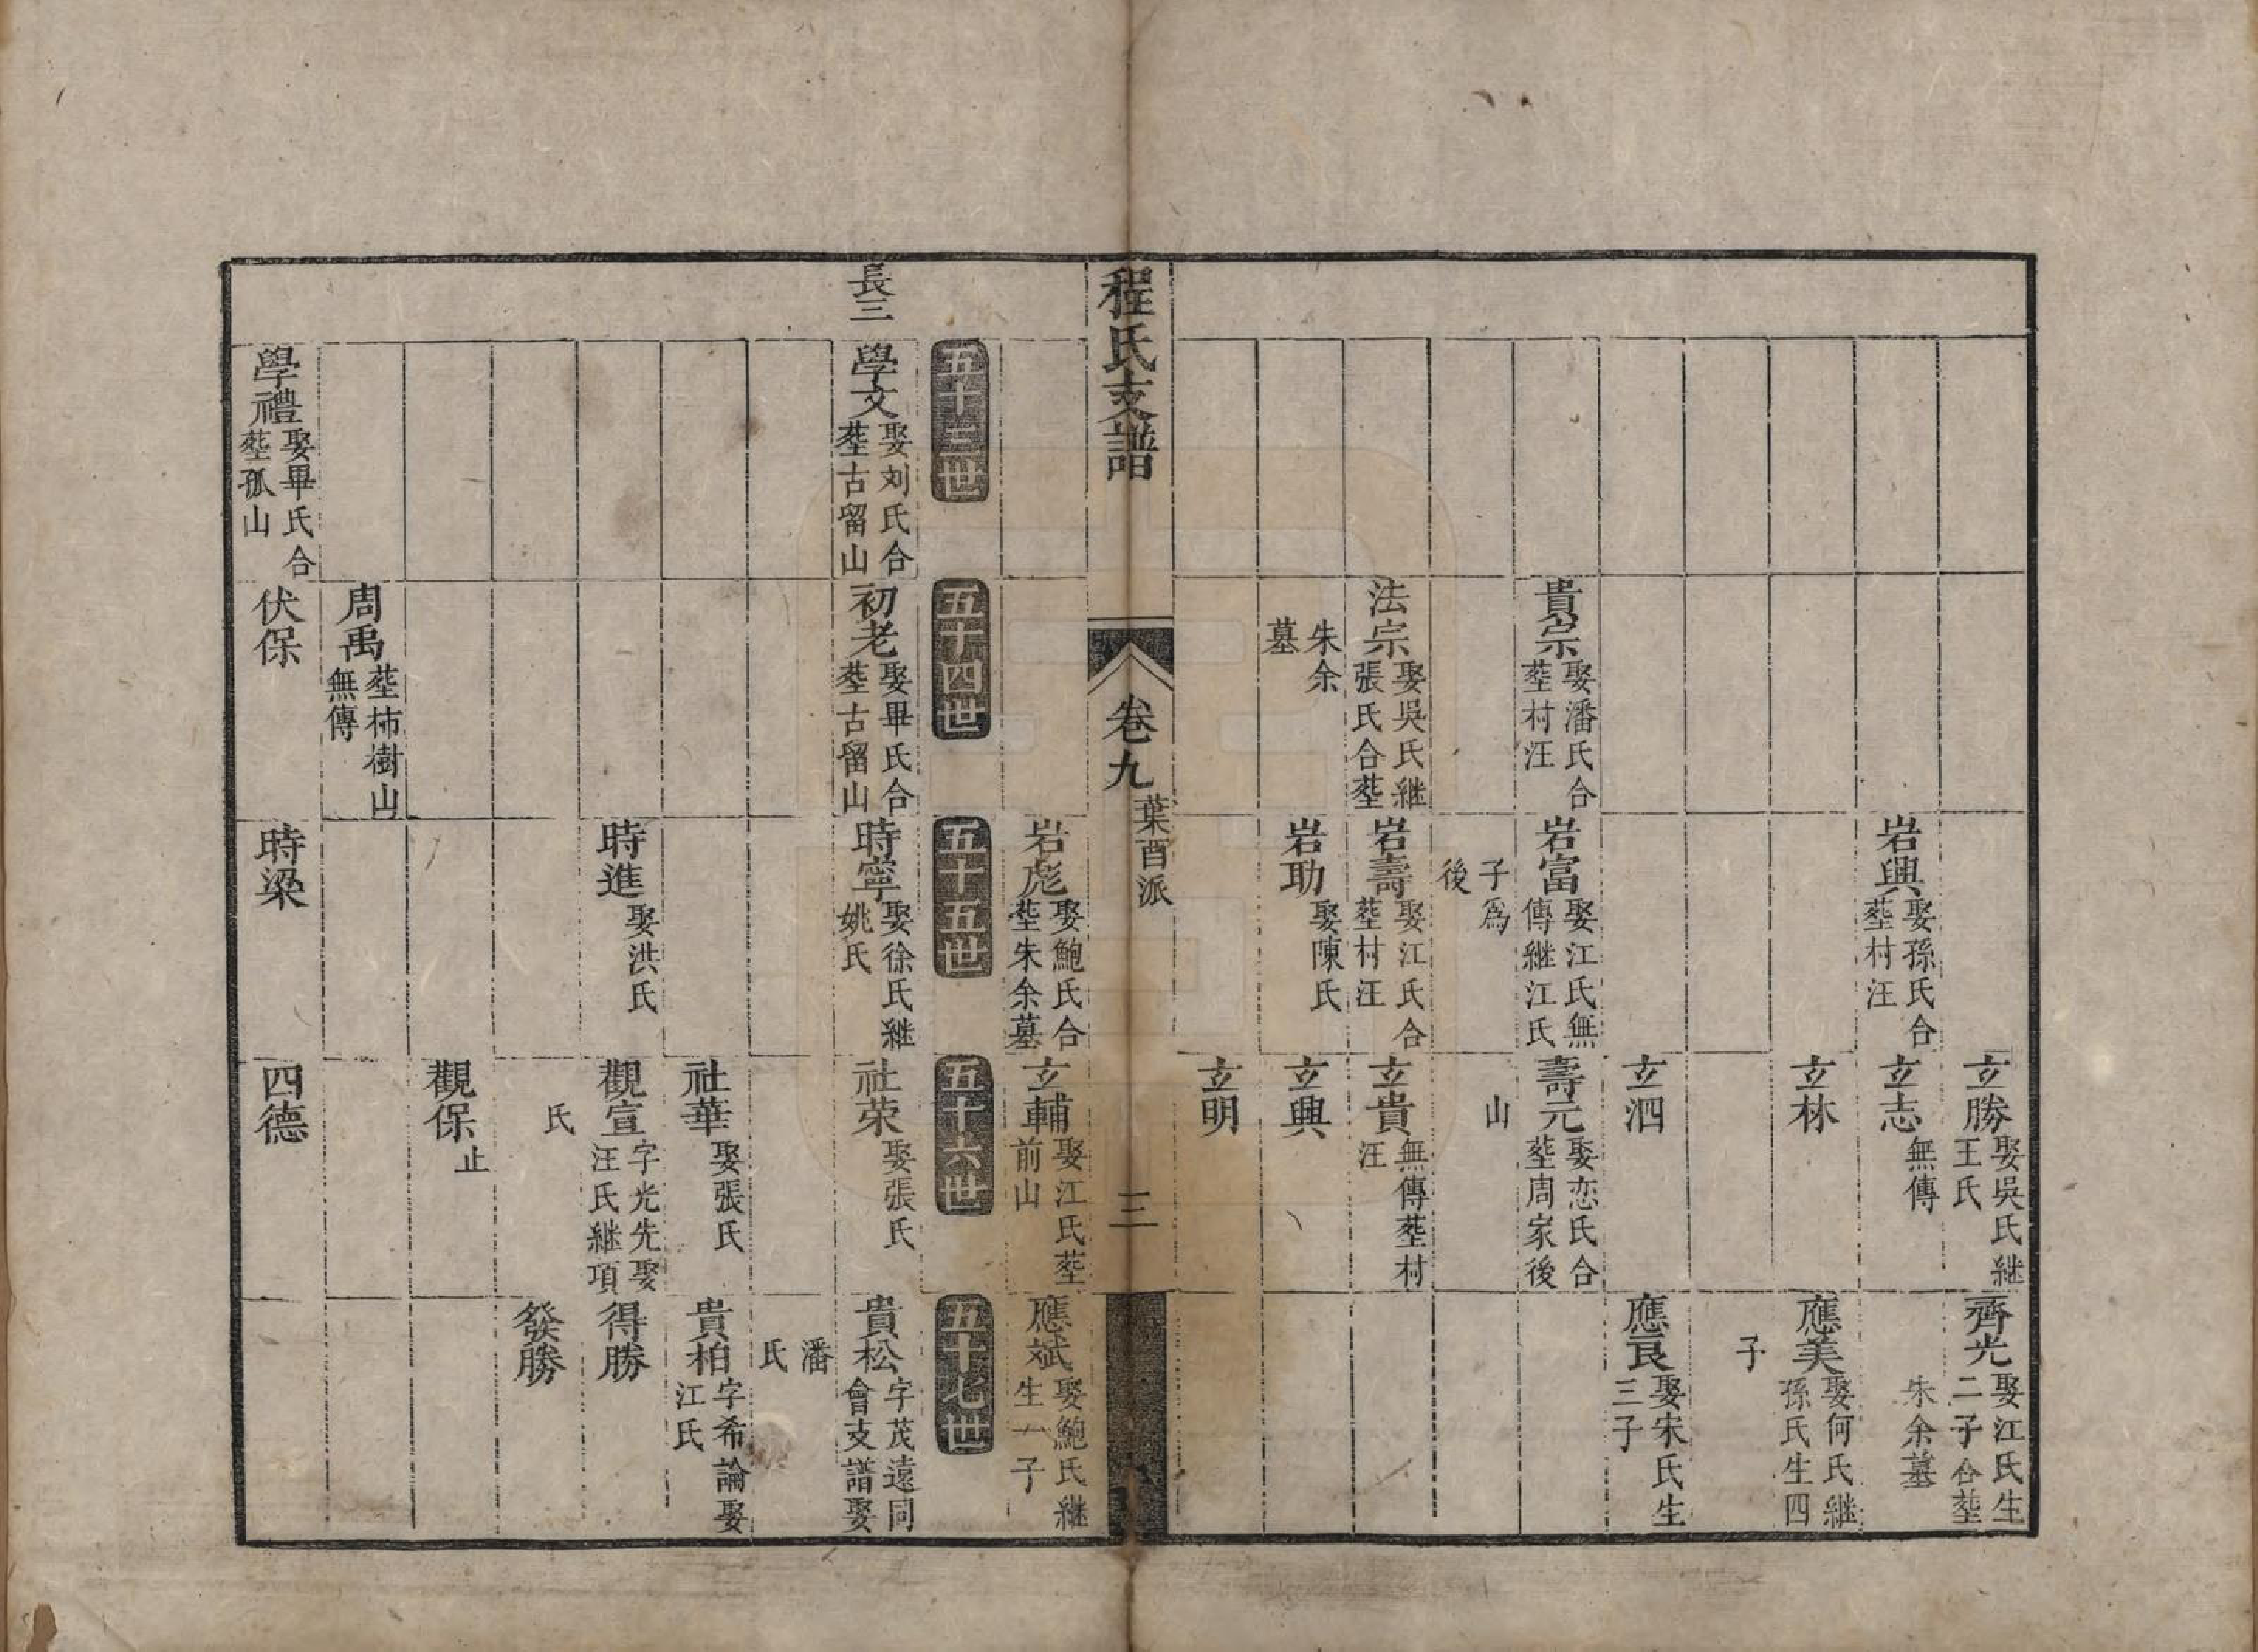 玄勝娶吳氏継王氏
齊光娶江氏生二子合塟
朱余墓
岩興娶孫氏合塟村汪
玄志無傳
玄林
應美娶何氏継孫氏生四
子
玄泗
應良娶宋氏生三子
貴宗娶潘氏合塟村汪
岩富娶江氏無傳継江氏
子爲後
壽元娶恋氏合塟周家後
山
法宗娶吳氏継張氏合塟
朱余墓
岩壽娶江氏合塟村汪
玄貴無傳塟村汪
岩助娶陳氏
玄興
玄明
程氏支譜
卷九
葉酉派
三
岩彪娶鮑氏合塟朱余墓
玄輔娶江氏塟前山
應斌娶鮑氏継生一子
五十三世
五十四世
五十五世
五十六世
五十七世
長三
學文娶刘氏合塟古留山
初老娶畢氏合塟古留山
時寧娶徐氏継姚氏
社荣娶張氏
貴松字茂遠同會支譜娶
潘氏
社華娶張氏
貴柏字希論娶江氏
時進娶洪氏
觀宣字光先娶汪氏継項
氏
得勝
發勝
觀保止
周禹塟柿樹山無傳
學禮娶畢氏合塟孤山
伏保
時梁
四德